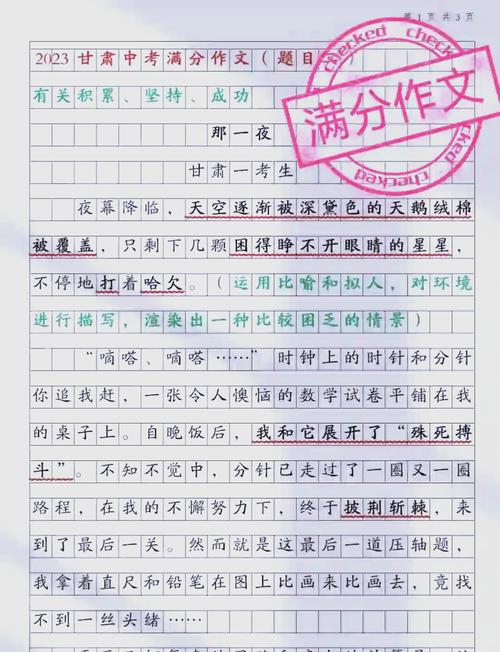 第1页 共3页
2023甘肃中考满分作文（题目
checked
满分作文
checked
有关积累、坚持、成功
那一夜
甘肃一考生
夜幕降临，天空逐渐被深黛色的天鹅绒棉
被覆盖，只剩下几颗困得睁不开眼睛的星星，
不停地打着哈欠。（运用比喻和拟人，对环境
进行描写，渲染出一种比较困乏的情景）
“嘀嗒、嘀嗒……”时钟上的时针和分针
你追我赶，一张令人懊恼的数学试卷平铺在我
的桌子上。自晚饭后，我和它展开了“殊死搏
斗”。不知不觉中，分针已走过了一圈又一圈
路程，在我的不懈努力下，终于披荆斩棘，来
到了最后一关。然而就是这最后一道压轴题，
我拿着直尺和铅笔在图上比画来比画去，竟找
不到一丝头绪……